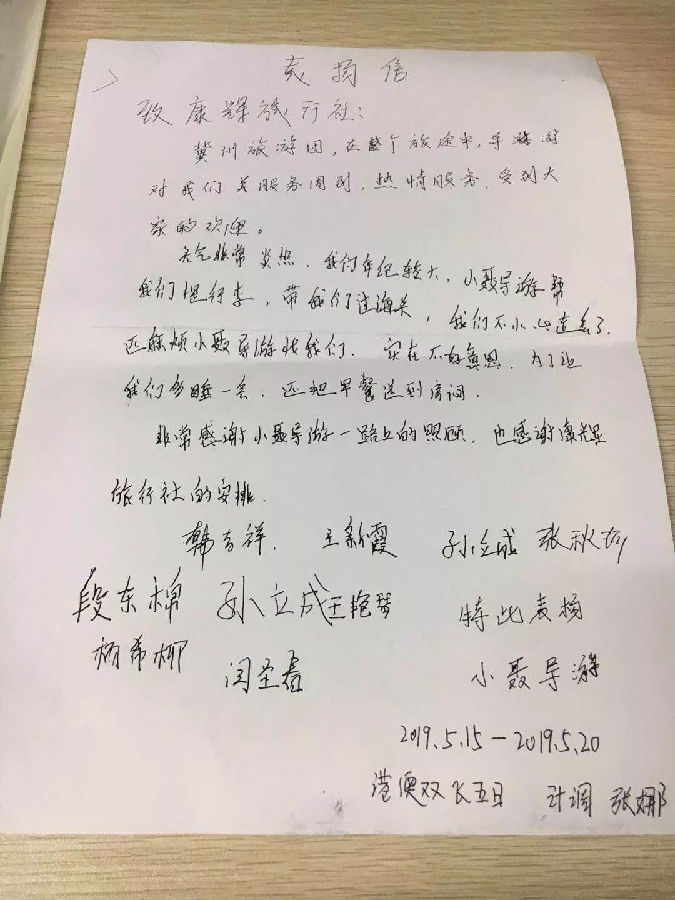 表扬信
致康辉旅行社：
冀州旅游团，在整个旅途中，导游
对我们服务周到，热情服务，受到大
家的欢迎。
天气非常炎热，我们年纪较大，小聂导游帮
我们提行李，带我们过海关，我们不小心走丢了，
还麻烦小聂导游找我们，实在不好意思，为了让
我们多睡一会，还把早餐送到房间．
非常感谢小聂导游一路上的照顾，也感谢康辉
旅行社的安排．
韩吉祥．王新霞 孙立成 张秋
段东棉 孙立成 王艳琴 特此表扬
杨希柳 闫圣 小聂导游
2019.5.15－2019.5.20
港澳双飞五日 计调 张娜